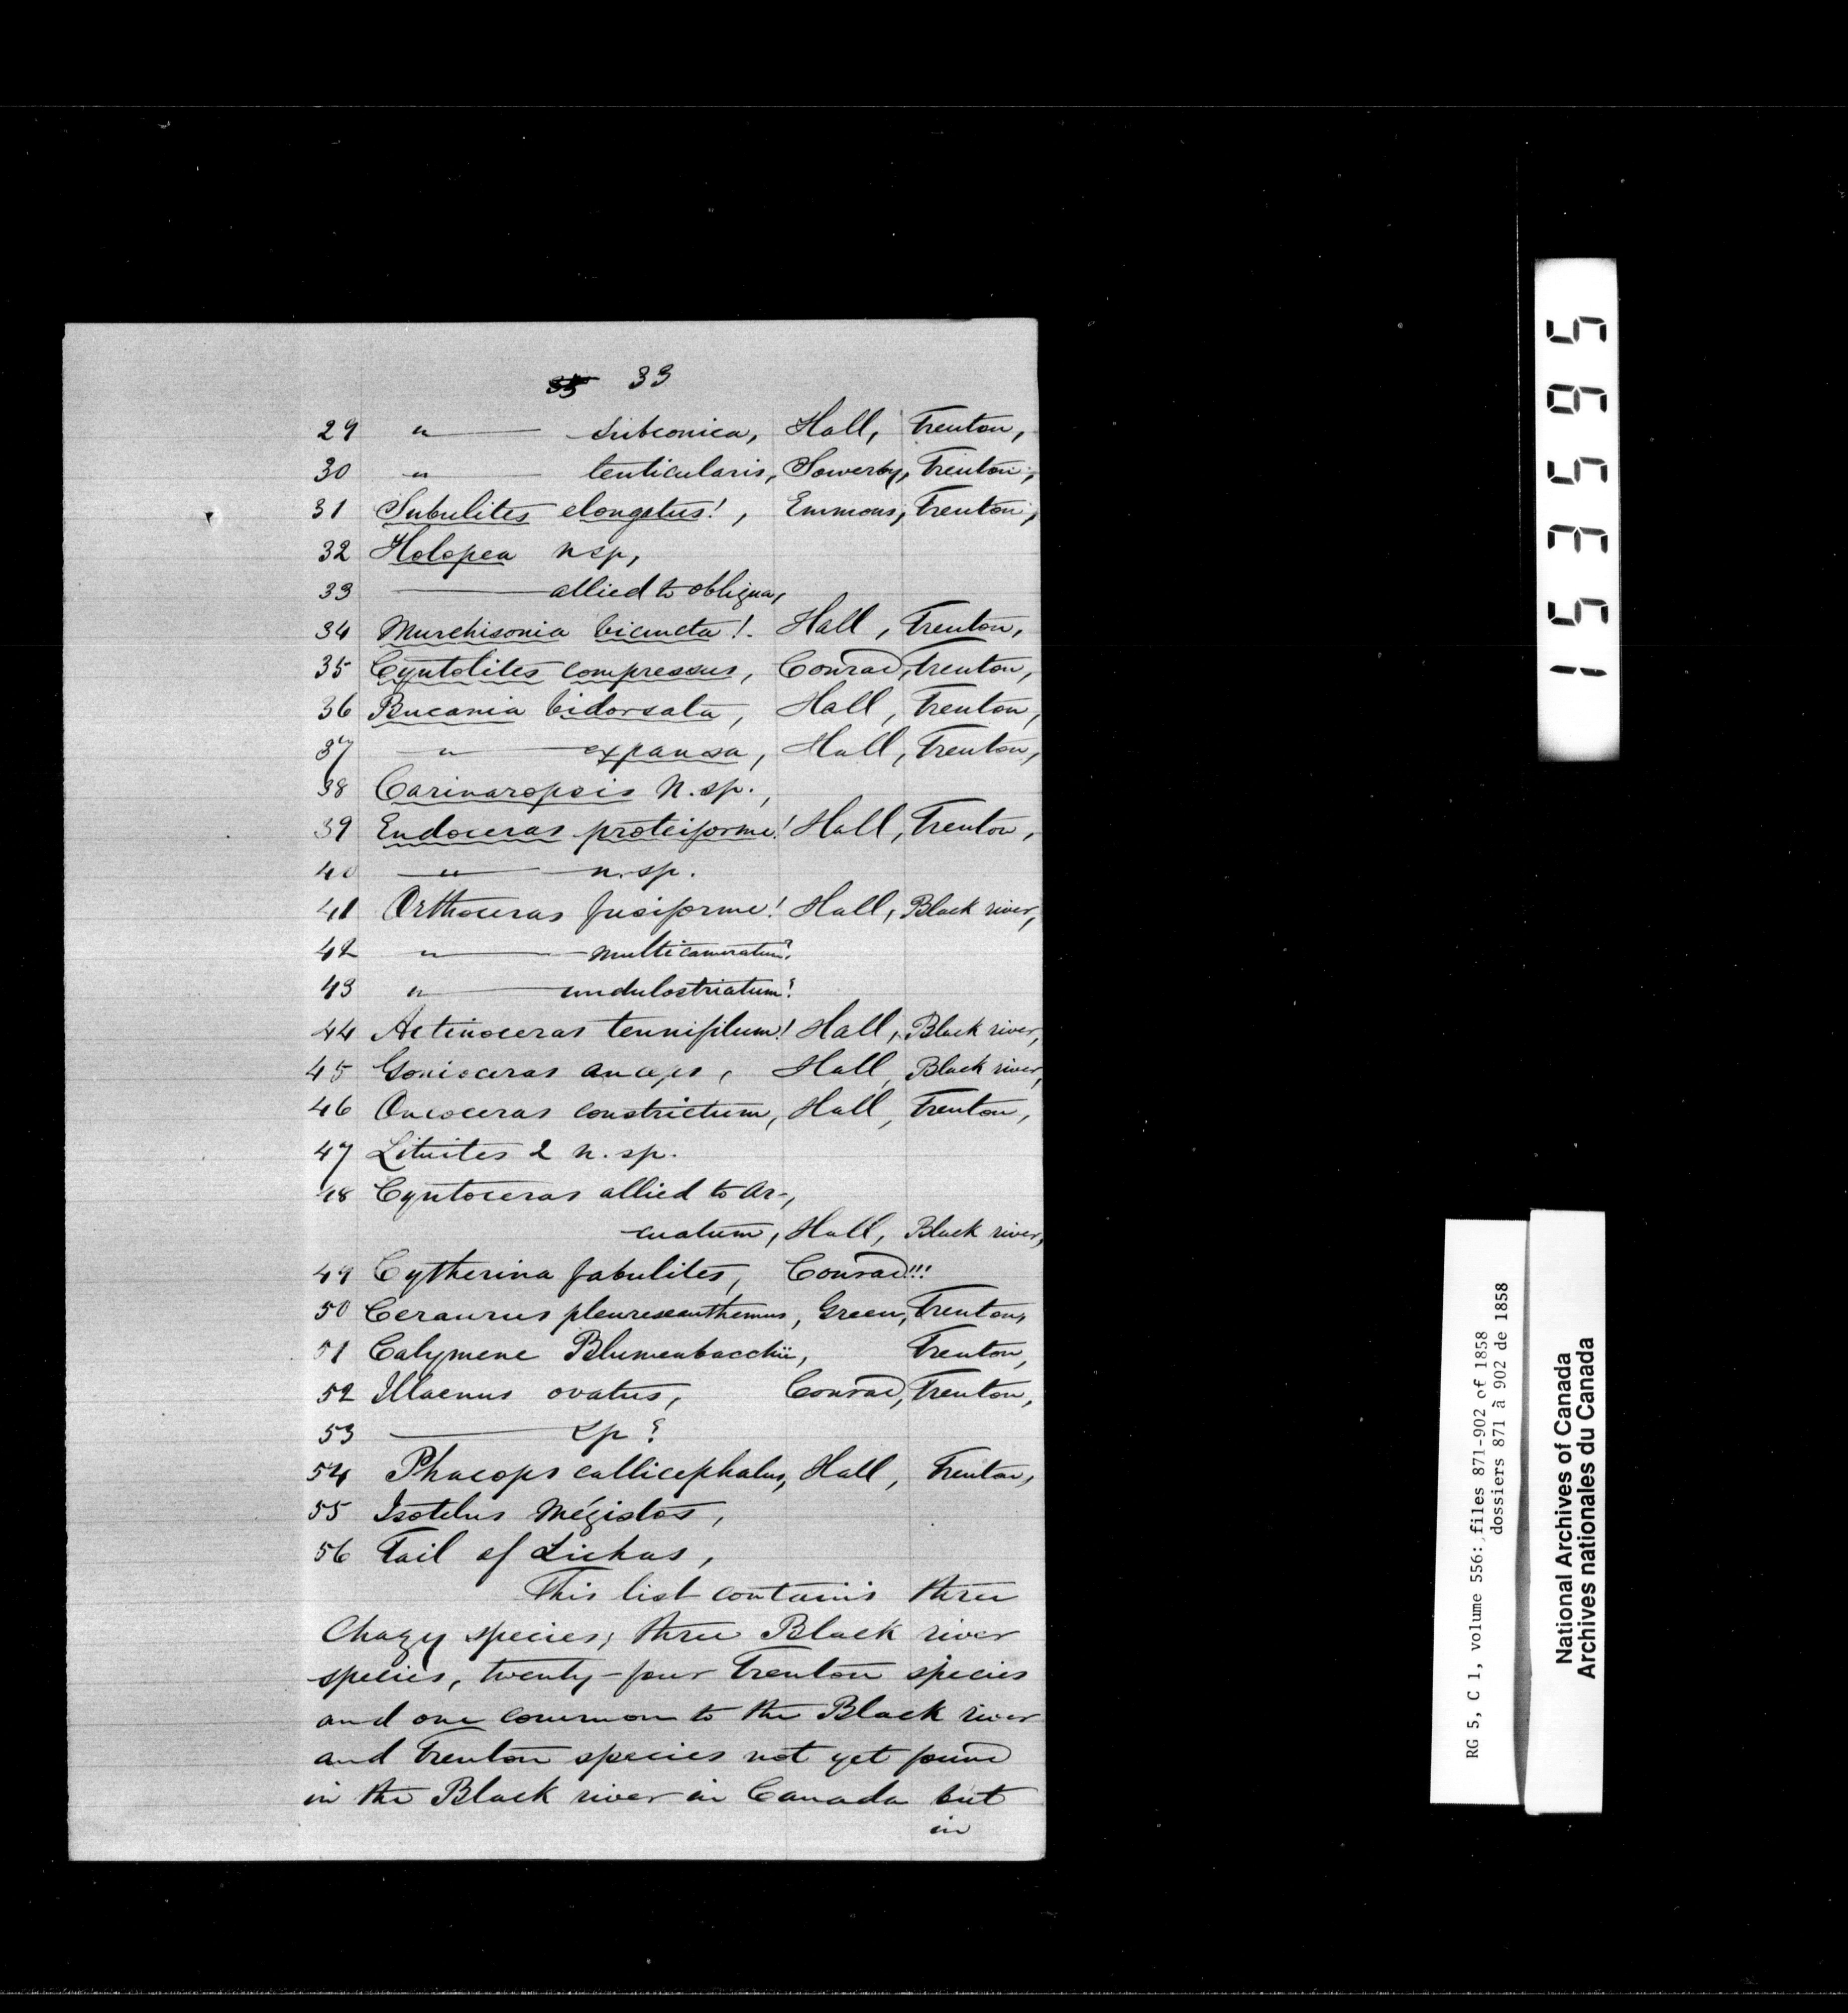 33
29 " subconica, Hall, Trenton,
30 " lenticularis, Sowerby, Trenton,
31 Subulites elongatus!, Emmons, Trenton,
32 Holopea n sp,
33 allied to obliqua,
34 Murchisonia bicincta!. Hall, Trenton,
35 Cyrtolites compressus, Conrad, Trenton,
36 Bucania bidorsata, Hall, Trenton,
37 " expansa, Hall, Trenton,
38 Carinaropsis N. sp.,
39 Endoceras proteiforme! Hall, Trenton,
40 " n. sp.
41 Orthoceras fusiforme! Hall, Black river,
42 " multicameratum?
43 " undulostriatum?
44 Actinoceras tenuifilum! Hall, Black river,
45 Gonioceras anceps, Hall, Black river,
46 Oncoceras constrictum, Hall, Trenton,
47 Lituites 2 n. sp.
48 Cyrtoceras allied to ar-,
cuatum, Hall, Black river,
49 Cytherina fabulites, Conrad!!!
50 Ceraurus pleurexanthemus, Green, Trenton,
51 Calymene Blumenbacchii, Trenton,
52 Illaenus ovatus, Conrad, Trenton,
53 sp?
54 Phacops callicephalus, Hall, Trenton,
55 Isotelus Mégistos,
56 Tail of Lichas,
This list contains three
Chazy species; three Black river
species, twenty-four Trenton species
and one common to the Black river
and Trenton species not yet found
in the Black river in Canada but
in
153595
RG 5, C 1, volume 556: files 871-902 of 1858
dossiers 871 à 902 de 1858
National Archives of Canada
Archives nationales du Canada